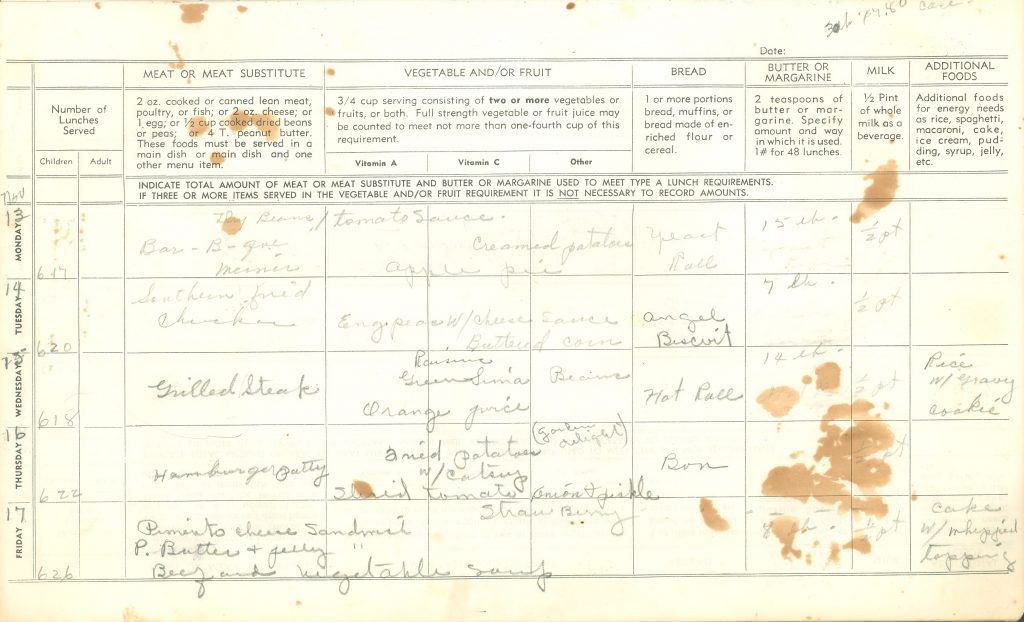 Date:
MEAT OR MEAT SUBSTITUTE
VEGETABLE AND/OR FRUIT
BREAD
BUTTER OR
MARGARINE
MILK
ADDITIONAL
FOODS
Number of
Lunches
Served
2 oz. cooked or canned lean meat,
poultry, or fish; or 2 oz. cheese; or
1 egg; or ½ cup cooked dried beans
or peas; or 4 T. peanut butter.
These foods must be served in a
main dish or main dish and one
other menu item.
3/4 cup serving consisting of two or more vegetables or
fruits, or both. Full strength vegetable or fruit juice may
be counted to meet not more than one-fourth cup of this
requirement.
1 or more portions
bread, muffins, or
bread made of en-
riched flour or
cereal.
2 teaspoons of
butter or mar-
garine. Specify
amount and way
in which it is used.
1# for 48 lunches.
½ Pint
of whole
milk as a
beverage.
Additional foods
for energy needs
as rice, spaghetti,
macaroni, cake,
ice cream, pud-
ding, syrup, jelly,
etc.
Children
Adult
Vitamin A
Vitamin C
Other
INDICATE TOTAL AMOUNT OF MEAT OR MEAT SUBSTITUTE AND BUTTER OR MARGARINE USED TO MEET TYPE A LUNCH REQUIREMENTS.
IF THREE OR MORE ITEMS SERVED IN THE VEGETABLE AND/OR FRUIT REQUIREMENT IT IS NOT NECESSARY TO RECORD AMOUNTS.
Nov
MONDAY 13
617
Dry Beans / tomato sauce
Bar-B-que
Weiner
Creamed potatoes
apple pie
yeast
Roll
15 lb.
½ pt
TUESDAY 14
620
Southern fried
Chicken
Eng peas W/cheese sauce
Buttered corn
angel
Biscuit
7 lb.
½ pt
WEDNESDAY
618
Grilled Steak
Raisins
Green Lima Beans
Orange juice
Hot Roll
14 lb.
½ pt
Rice
W/gravy
cookie
THURSDAY 16
622
Hamburger patty
Fried potatoes
W/Catsup
Sliced tomato onion & pickle
Bon
pt
FRIDAY 17
626
Pimento cheese Sandwich
P. Butter & jelly "
Beef and vegetable soup
Straw Berry
lb.
½ pt
cake
W/whipped
topping